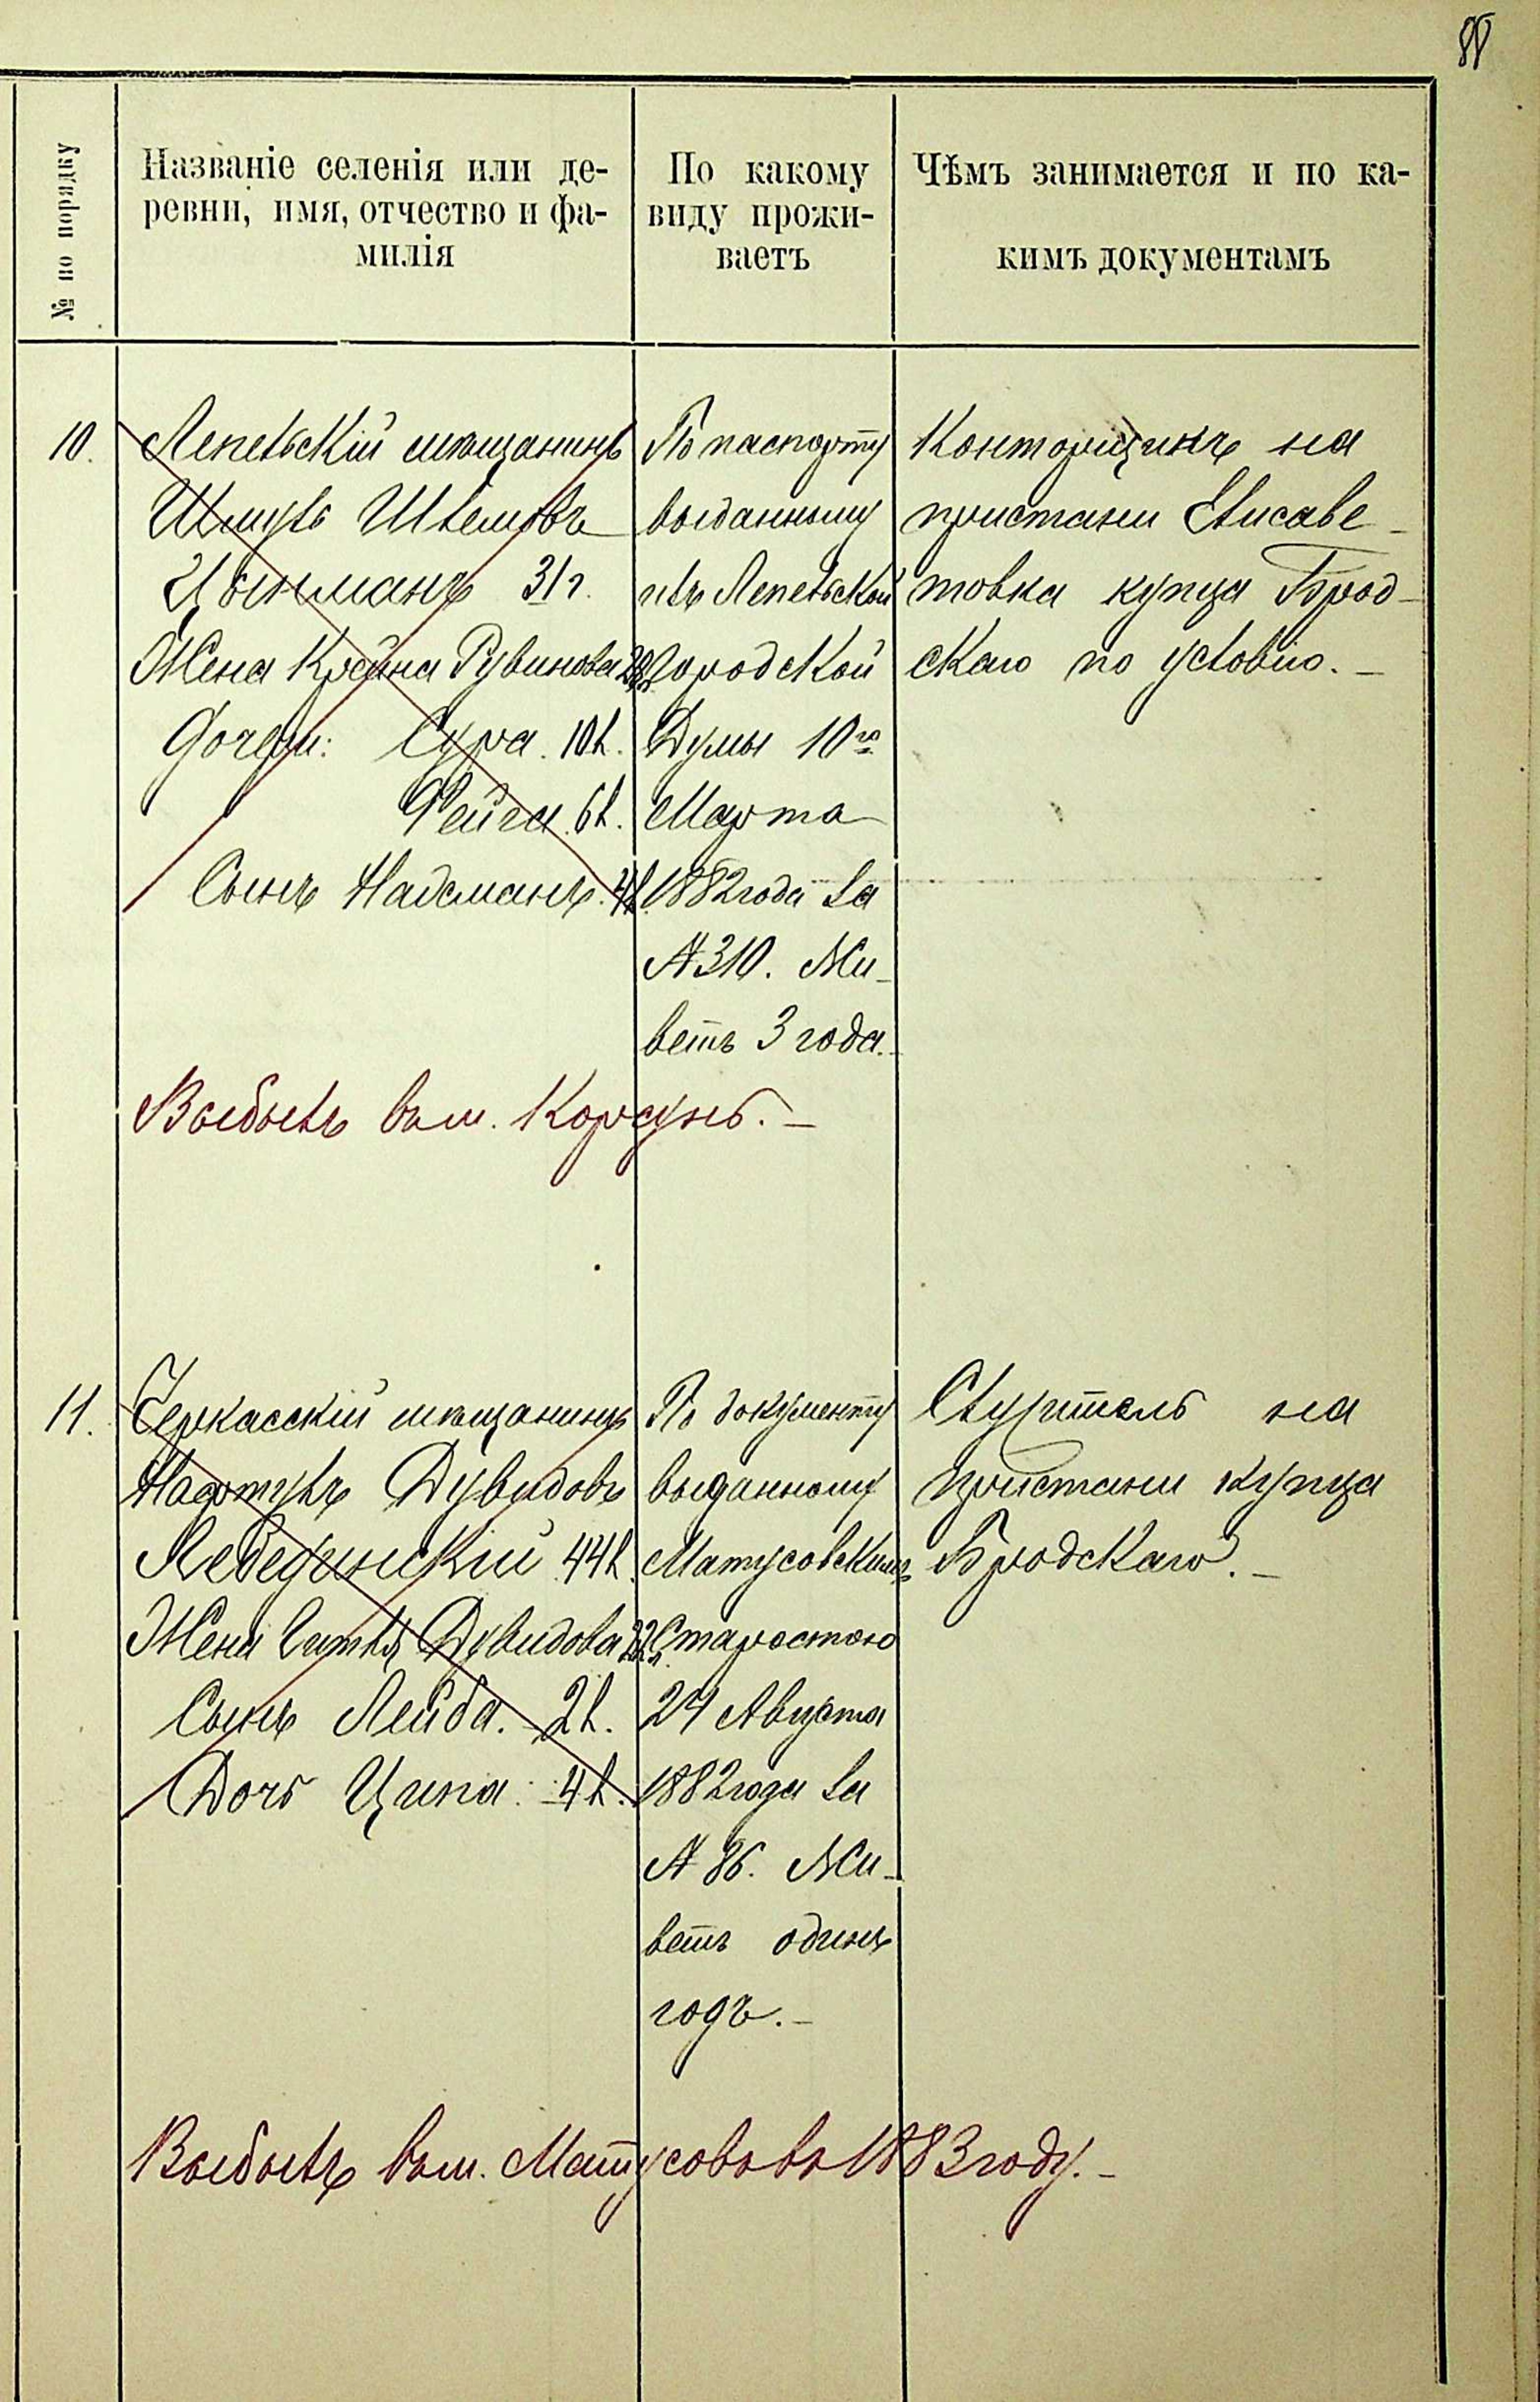 88
№ по порядку
Названіе селенія или де-
ревни, имя, отчество и фа-
милія
По какому
виду прожи-
ваетъ
Чѣмъ занимается и по ка-
кимъ документамъ
10.
Лепельскій мѣщанинъ
Шмуль Шлемовъ
Цынманъ 31 г.
Жена Крейна Рувинова 28 л.
Дочери: Сура. 10 л.
Фейга. 6 л.
Сынъ 4 л.
По паспорту
выданному
изъ Лепельской
Городской
Думы 10го
Марта
1882 года за
№ 310. Жи-
ветъ 3 года.
Конторщикъ на
пристани Елисаве-
товка купца Брод-
скаго по условію. —
Выбылъ въ м. Корсунь. —
11.
Черкасскій мѣщанинъ
Дувидовъ
Лебединскій 44 л.
Жена Дувидова 32 л.
Сынъ Лейба. 2 л.
Дочь Ципа. 4 л.
По документу
выданному
Матусовскимъ
Старостою
24 Августа
1882 года за
№ 86. Жи-
ветъ одинъ
годъ. —
Служитель на
пристани купца
Бродскаго. —
Выбылъ въ м. Матусовъ въ 1883 году. —